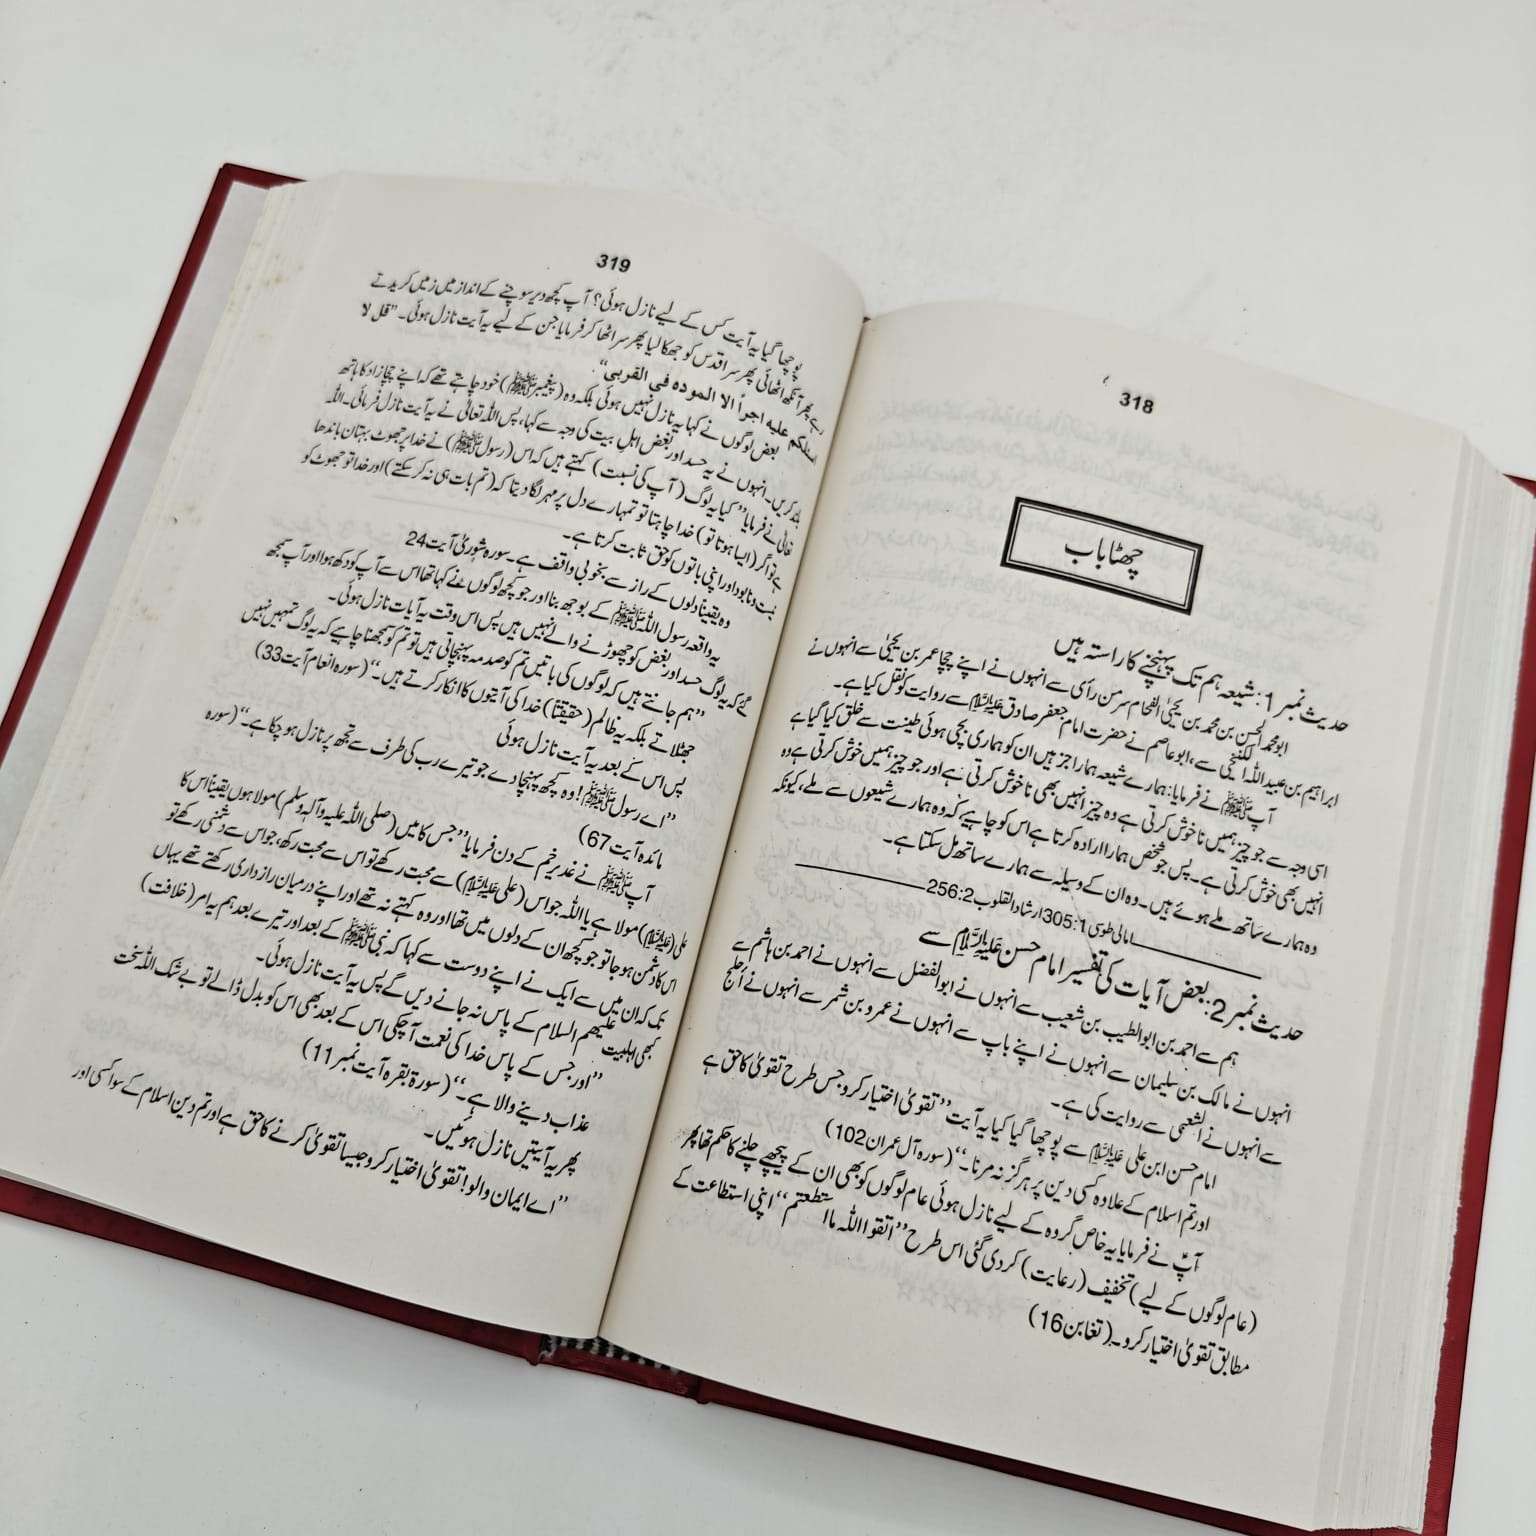 318
چھٹا باب
حدیث نمبر 1: شیعہ ہم تک پہنچنے کا راستہ ہیں
ابو محمد الحسن بن محمد بن یحییٰ الفحام سر من رأی سے انہوں نے اپنے چچا عمر بن یحییٰ سے انہوں نے
ابراہیم بن عبید اللہ سے، ابو عاصم نے حضرت امام جعفر صادق علیہ السلام سے روایت کو نقل کیا ہے۔
آپ ﷺ نے فرمایا: ہمارے شیعہ ہمارا جز ہیں ان کو ہماری بچی ہوئی طینت سے خلق کیا گیا ہے
اسی وجہ سے جو چیز ہمیں ناخوش کرتی ہے وہ چیز انہیں بھی ناخوش کرتی ہے اور جو چیز ہمیں خوش کرتی ہے وہ
انہیں بھی خوش کرتی ہے۔ پس جو شخص ہمارا ارادہ کرتا ہے اس کو چاہیے کہ وہ ہمارے شیعوں سے ملے، کیونکہ
وہ ہمارے ساتھ ملے ہوئے ہیں۔ وہ ان کے وسیلہ سے ہمارے ساتھ مل سکتا ہے۔
امالی طوسی 305:1 ارشاد القلوب 256:2
حدیث نمبر 2: بعض آیات کی تفسیر امام حسن علیہ السلام سے
ہم سے احمد بن ابو الطیب بن شعیب سے انہوں نے ابو الفضل سے انہوں نے احمد بن ہاشم سے
انہوں نے مالک بن سلیمان سے انہوں نے اپنے باپ سے انہوں نے عمرو بن شمر سے انہوں نے
سے انہوں نے الشعبی سے روایت کی ہے۔
امام حسن ابن علی علیہ السلام سے پوچھا گیا کیا یہ آیت ”تقویٰ اختیار کرو جس طرح تقویٰ کا حق ہے
اور تم اسلام کے علاوہ کسی دین پر ہرگز نہ مرنا۔“ (سورہ آل عمران 102)
آپؑ نے فرمایا یہ خاص گروہ کے لیے نازل ہوئی عام لوگوں کو بھی ان کے پیچھے چلنے کا حکم تھا پھر
(عام لوگوں کے لیے) تخفیف (رعایت) کر دی گئی اس طرح ”اتقوا اللہ ما استطعتم“ اپنی استطاعت کے
مطابق تقویٰ اختیار کرو۔ (تغابن 16)
319
پوچھا گیا یہ آیت کس کے لیے نازل ہوئی؟ آپ کچھ دیر سوچنے کے انداز میں زمیں کریدتے
رہے پھر آنکھ اٹھائی پھر سر اقدس کو جھکا لیا پھر سر اٹھا کر فرمایا جن کے لیے یہ آیت نازل ہوئی۔ ”قل لا
اسئلکم علیہ اجراً الا المودہ فی القربی“۔
بعض لوگوں نے کہا یہ نازل نہیں ہوئی بلکہ وہ (پیغمبر ﷺ) خود چاہتے تھے کہ اپنے چچا زاد کا ہاتھ
بلند کریں۔ انہوں نے یہ حسد اور بغض اہل بیت کی وجہ سے کہا، پس اللہ تعالیٰ نے یہ آیت نازل فرمائی۔ اللہ
تعالیٰ نے فرمایا ”کیا یہ لوگ (آپ کی نسبت) کہتے ہیں کہ اس (رسول ﷺ) نے خدا پر جھوٹ بہتان باندھا
ہے تو اگر (ایسا ہوتا تو) خدا چاہتا تو تمہارے دل پر مہر لگا دیتا کہ (تم بات ہی نہ کر سکتے) اور خدا تو جھوٹ کو
نیست و نابود اور اپنی باتوں کو حق ثابت کرتا ہے۔
وہ یقینا دلوں کے راز سے بخوبی واقف ہے۔ سورہ شوریٰ آیت 24
یہ واقعہ رسول اللہ ﷺ کے بوجھ بنا اور جو کچھ لوگوں نے کہا تھا اس سے آپ کو دکھ ہوا اور آپ سمجھ
گئے کہ یہ لوگ حسد اور بغض کو چھوڑنے والے نہیں ہیں پس اس وقت یہ آیات نازل ہوئی۔
”ہم جانتے ہیں کہ لوگوں کی باتیں تم کو صدمہ پہنچاتی ہیں تو تم کو سمجھنا چاہیے کہ یہ لوگ تمہیں نہیں
جھٹلاتے بلکہ یہ ظالم (حقیقتاً) خدا کی آیتوں کا انکار کرتے ہیں۔“ (سورہ انعام آیت 33)
پس اس کے بعد یہ آیت نازل ہوئی
”اے رسول ﷺ! وہ کچھ پہنچا دے جو تیرے رب کی طرف سے تجھ پر نازل ہو چکا ہے۔“ (سورہ
مائدہ آیت 67)
آپ ﷺ نے غدیر خم کے دن فرمایا ”جس کا میں (صلی اللہ علیہ وآلہ وسلم) مولا ہوں یقینا اس کا
علی (علیہ السلام) مولا ہے یا اللہ جو اس (علی علیہ السلام) سے محبت رکھے تو اس سے محبت رکھ، جو اس سے دشمنی رکھے تو
اس کا دشمن ہو جا تو جو کچھ ان کے دلوں میں تھا اور وہ کہتے نہ تھے اور اپنے درمیان رازداری رکھتے تھے یہاں
تک کہ ان میں سے ایک نے اپنے دوست سے کہا کہ نبی ﷺ کے بعد اور تیرے بعد ہم یہ امر (خلافت)
کبھی اہلبیت علیھم السلام کے پاس نہ جانے دیں گے پس یہ آیت نازل ہوئی۔
”اور جس کے پاس خدا کی نعمت آ چکی اس کے بعد بھی اس کو بدل ڈالے تو بے شک اللہ سخت
عذاب دینے والا ہے۔“ (سورۃ بقرہ آیت نمبر 11)
پھر یہ آیتیں نازل ہوئیں۔
”اے ایمان والو! تقویٰ اختیار کرو جیسا تقویٰ کرنے کا حق ہے اور تم دین اسلام کے سوا کسی اور